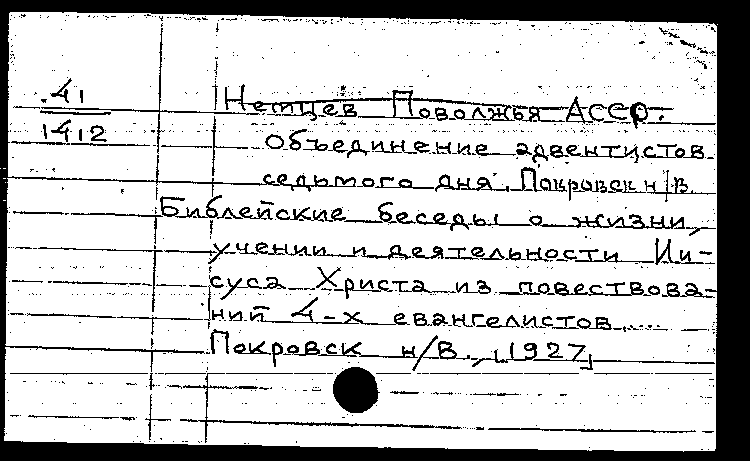 41
1412
Немцев Поволжья АССР.
Объединение адвентистов
седьмого дня. Покровск н/В.
Библейские беседы о жизни,
учении и деятельности Ии-
суса Христа из повествова-
ний 4-х евангелистов....
Покровск н/В., [1927]